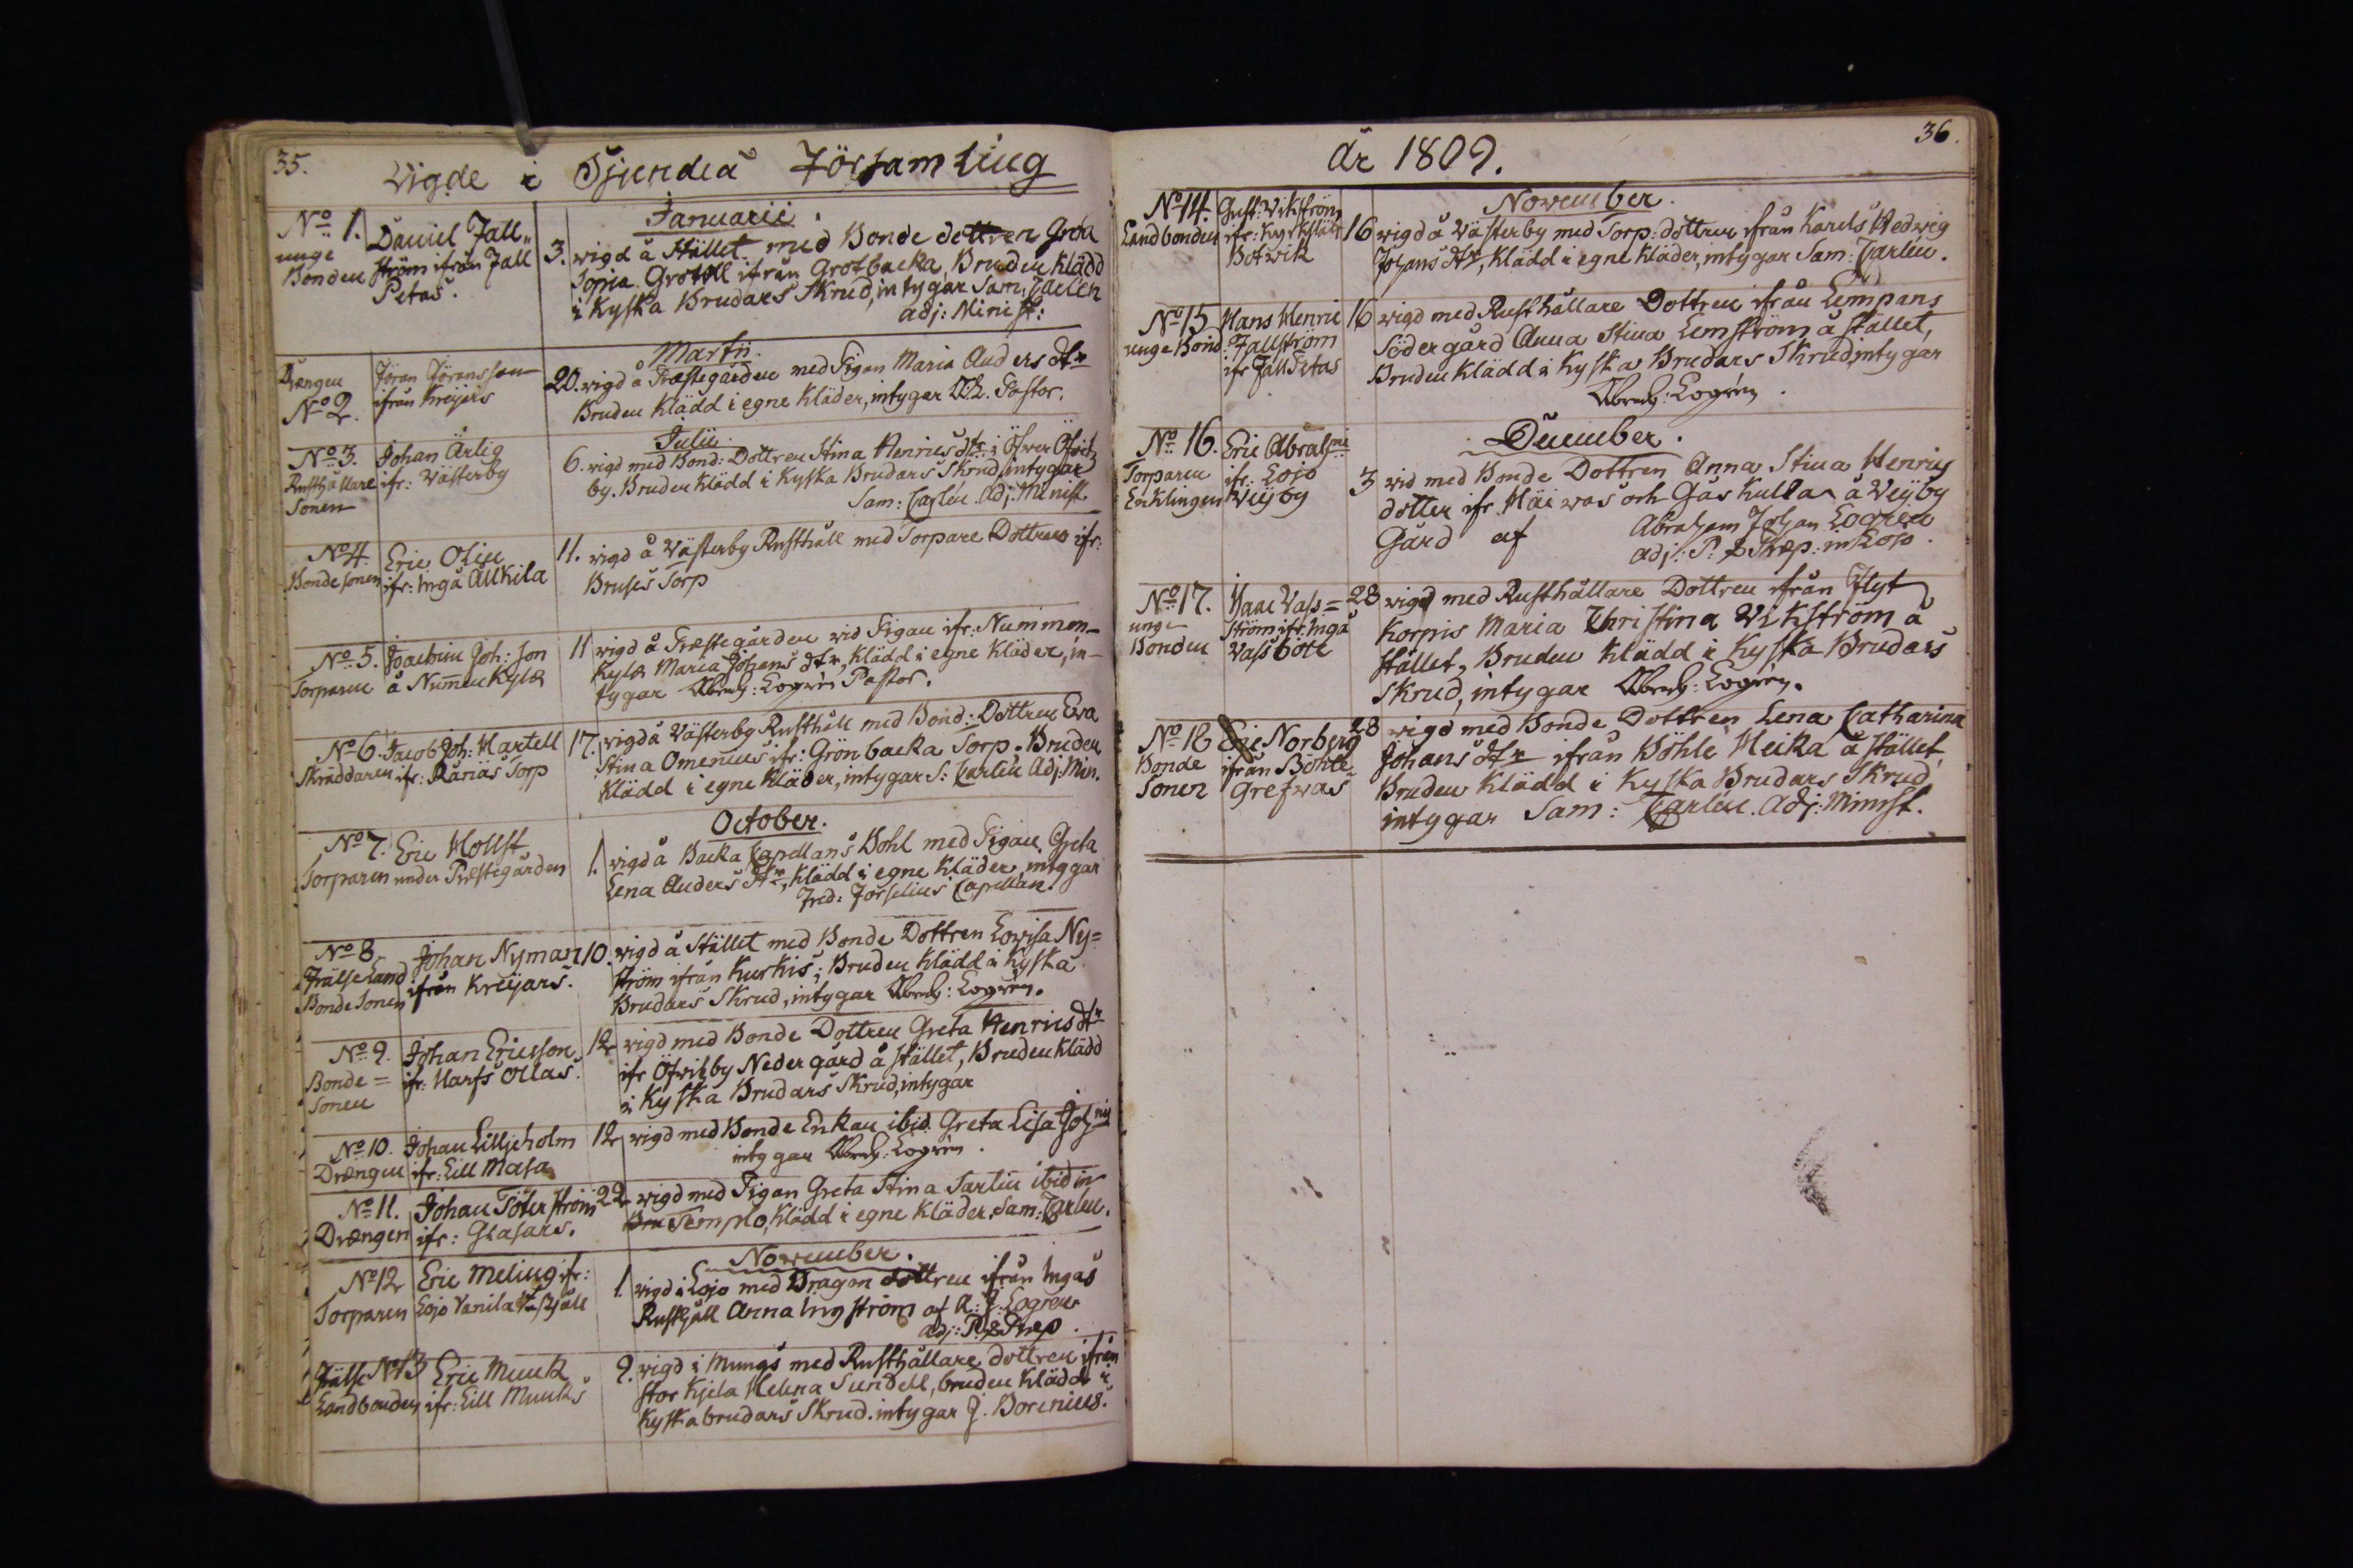 35.
Vigde i Sjundeå Församling
No 1.
unge
Bonden
Daniel Fall„
ström ifrån Fall
Petas.
Januarii.
3. vigd å Stället med Bonde dottren Greta
Sofia Grotell ifrån Grotbacka, Bruden Klädd
i Kyska Brudars Skrud, intygar Sam: Carlén
adj: Minist:
Drængen
No 2.
Jöran Jöransson
ifrån Kreijars
Martii.
20. vigd å Præstegården med Pigan Maria Anders dtr
Bruden Klädd i egne Kläder, intygar Pastor.
No 3.
Rusthållare
Sonen
Johan Ärlig
ifr: Västerby
Julii.
6. vigd med Bond: Dottren Stina Henrics dtr i Öfver Öfvitz
by. Bruden Klädd i Kyska Brudars Skrud, intygar
Sam: Carlén Adj: Minist.
No 4.
Bonde sonen
Eric Olin
ifr: Ingå Allkila
11. vigd å Västerby Rusthåll med Torpare Dottren ifr:
Bruses Torp
No 5.
Torparen
Joachim Joh: son
å Nummenkylæ
11 vigd å Præstegården vid Pigan ifr: Nummen-
kylæ Maria Johans dtr, Klädd i egne Kläder, in-
tygar Abrah: Logrén Pastor.
No 6.
Skräddaren
Jacob Joh: Martell
ifr: Rariäs Torp
17. vigd å Västerby Rusthåll med Bond: Dottren Eva
Stina Omenius ifr: Grönbacka Torp. Bruden
Klädd i egne Kläder, intygar S: Carlén Adj: Min.
October.
No 7.
Torparen
Eric Hollst
under Præstegården
1. vigd å Backa Capellans Bohl med Pigan Greta
Lena Anders dtr, Klädd i egne Kläder, intygar
Fred: Forselius Capellan.
No 8
Frälse Land
Bonde Sonen
Johan Nyman
ifrån Kreijars.
10. vigd å Stället med Bonde Dottren Lovisa Ny=
ström ifrån Kurkis; Bruden Klädd i Kyska
Brudars Skrud, intygar Abrah: Logrén.
No 9.
Bonde =
Sonen
Johan Ericsson
ifr: Harfs Ollas.
12 vigd med Bonde Dottren Greta Henrics dtr
ifr Öfvitzby Nedergård å stället, Bruden Klädd
i Kyska Brudars Skrud, intygar
No 10.
Drængen
Johan Lilljeholm
ifr: Lill Masa
12 vigd med Bonde Enkan ibid. Greta Lisa Joh
intygar Abrah: Logrén.
No 11.
Drængen
Johan Söterström
ifr: Glasars.
22 vigd med Pigan Greta Stina Sarlin ibid in
Templo, Klädd i egne Kläder. Sam: Carlén.
November.
No 12
Torparen
Eric Meling ifr:
Lojo Vanila
1. vigd i Lojo med Dragon dottren ifrån Ingas
Rusthåll Anna Ingström af A: J: Logrén
adj: P. & Præp.
No 13
Frälse
Landbonden
Eric Munck
ifr: Lill Muncks
9. vigd i Mungs med Rusthållare dottren ifrån
Stor Kyrla Helena Sundell, bruden Klädd i
Kyska brudars Skrud. intygar J. Borenius.
36.
år 1809.
November.
No 14.
Landbonden
Gust: Vikström
ifr: Kyrkslätt
Botvik
16 vigd å Västerby med Torp: dottren ifrån Karels Hedvig
Johans dtr, Klädd i egne Kläder, intygar Sam: Carlén.
No 15
unge Bond
Hans Henric
Fallström
ifr Fall Petas
16 vigd med Rusthållare Dottren ifrån Lempans
Södergård Anna Stina Lemström å stället,
Bruden Klädd i Kyska Brudars Skrud, intygar
Abrah: Logrén.
December.
No 16.
Torparen
Encklingen
Eric Abrah
ifr: Lojo
Veijby
3 vid med Bonde Dottren Anna Stina Henrics
dotter ifr Häivas och Gås Kulla å Veijby
Gård af Abraham Johan Logrén
adj: P. & Præp: in Lojo.
No 17.
unge
Bonden
Isaac Vass=
ström ifr: Ingå
Vassböle
28 vigd med Rusthållare Dottren ifrån Flyt
Korpis Maria Christina Vikström å
stället, Bruden Klädd i Kyska Brudars
Skrud, intygar Abrah: Logrén.
No 18
Bonde
Sonen
Eric Norberg
ifrån Böhle
Grefvas
28 vigd med Bonde Dottren Lena Catharina
Johans dtr ifrån Böhle Heika å stället,
Bruden Klädd i Kyska Brudars Skrud,
intygar Sam: Carlén. Adj: Minist.